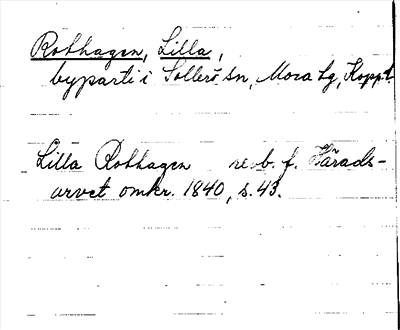 Rothagen, Lilla,
byparti i Sollerö sn, Mora tg, Koppb.
Lilla Rothagen neob. f. Härads-
arvet omkr. 1840, s. 43.